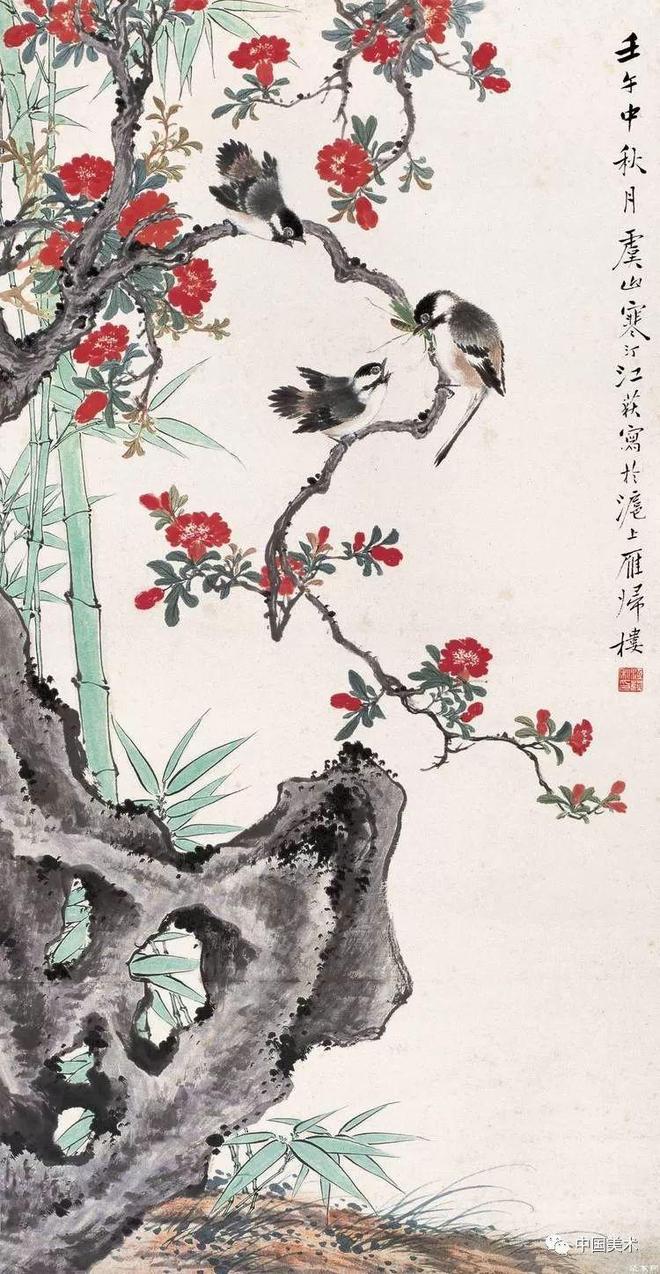 壬午中秋月虞山寒汀江荻寫於滬上雁歸樓
中国美术